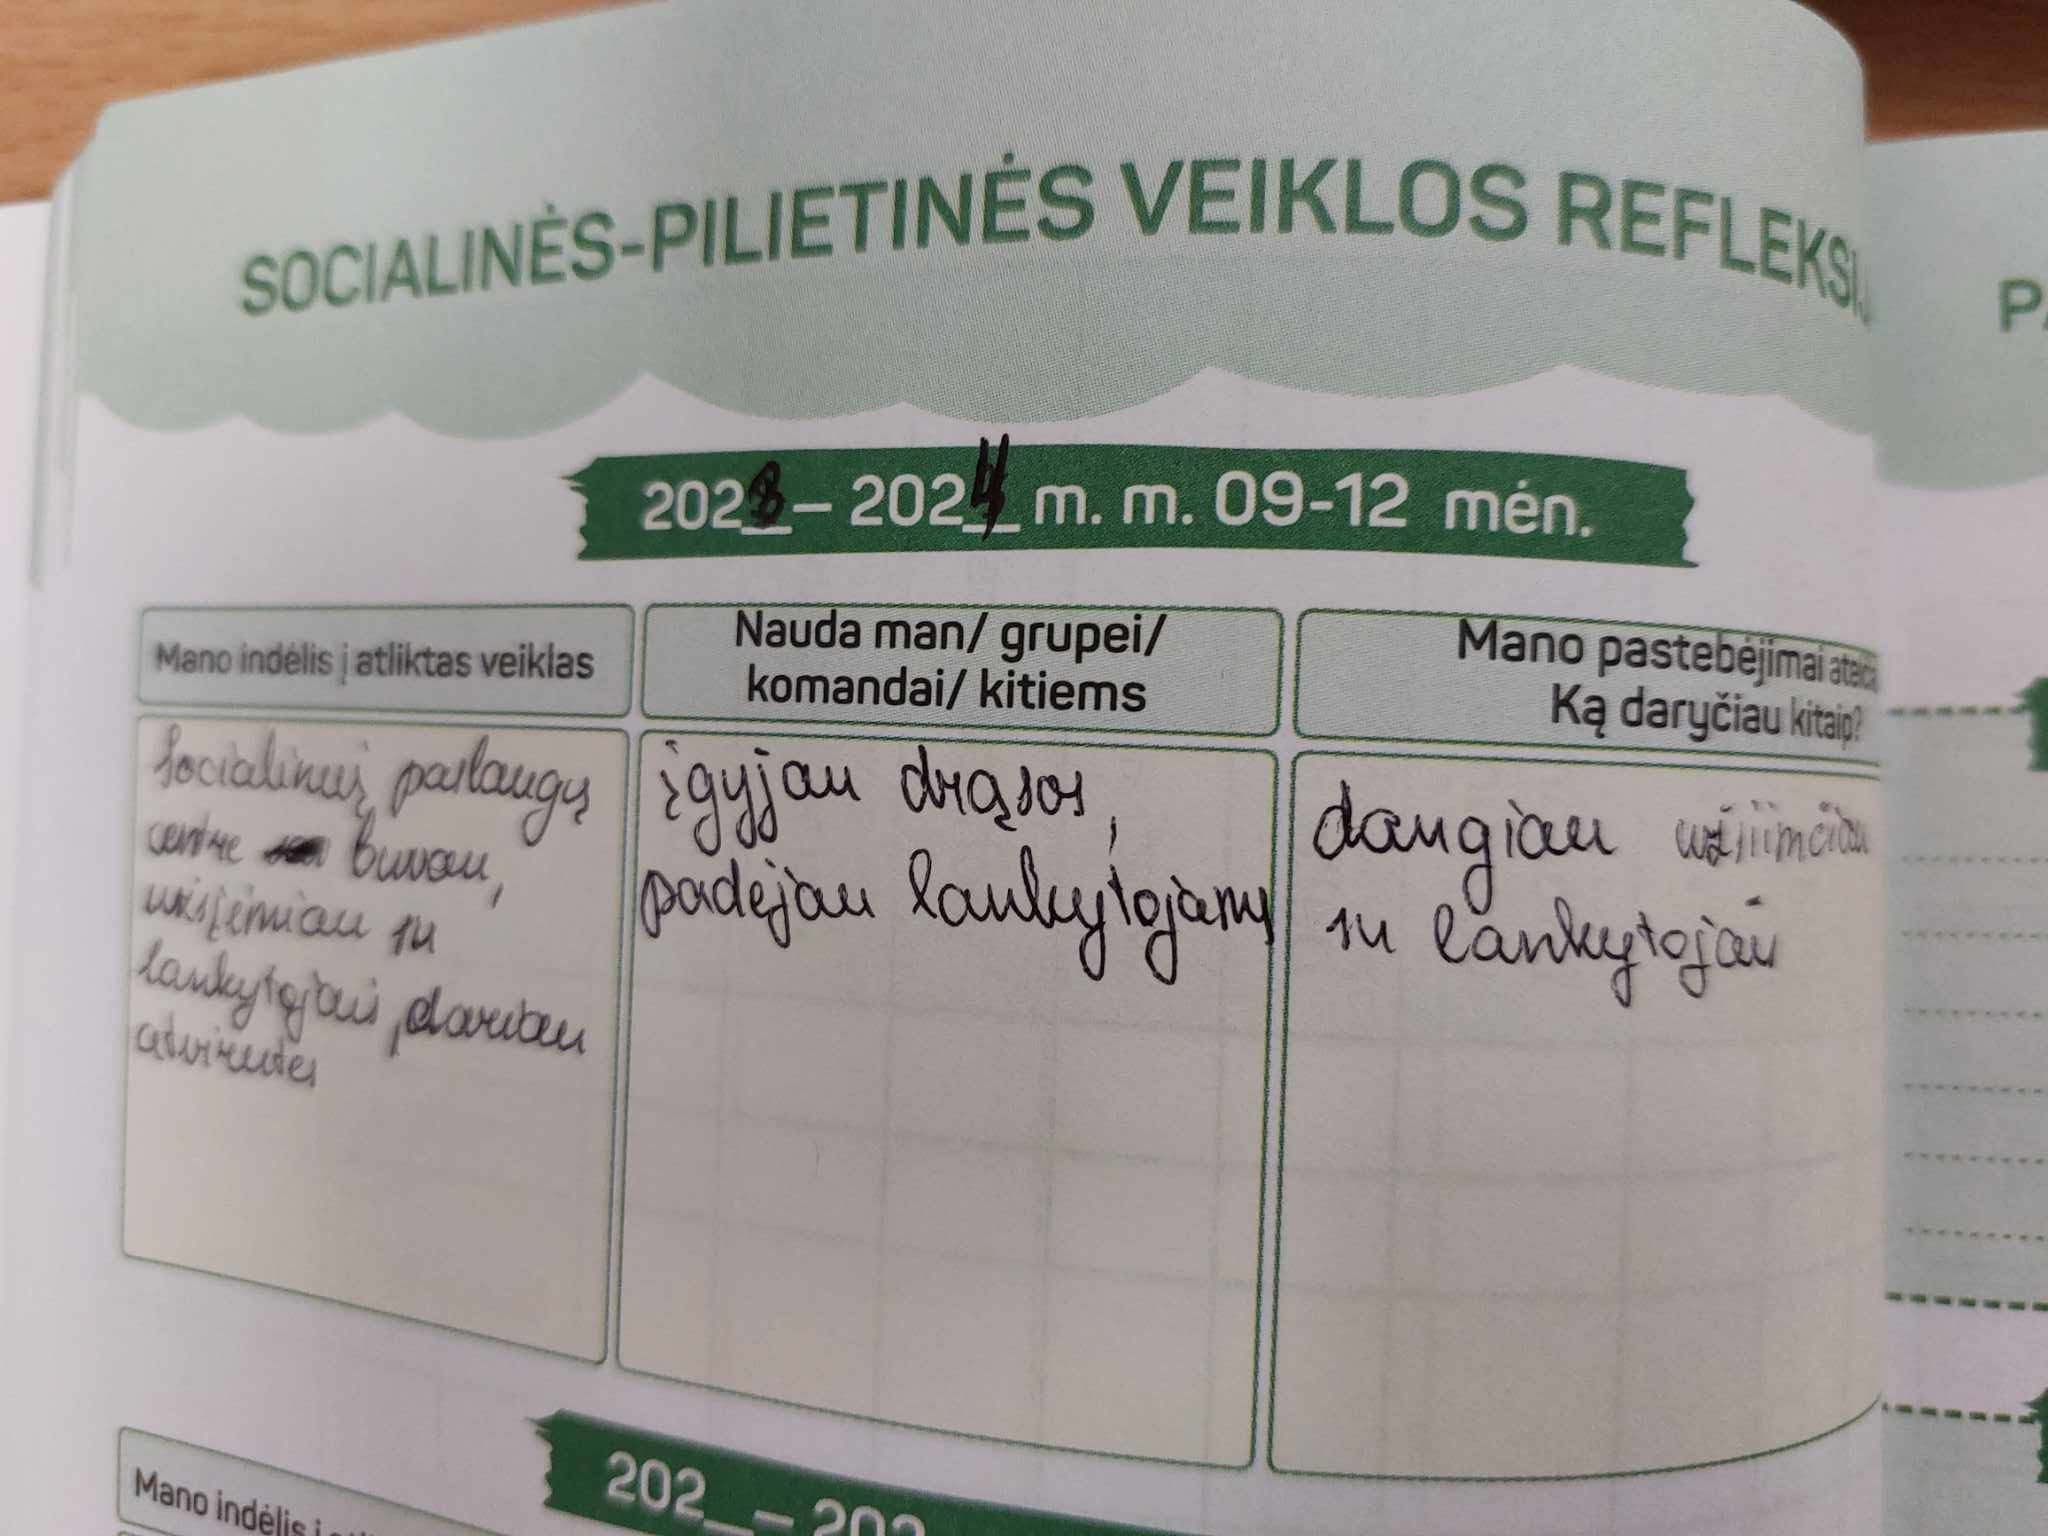 SOCIALINĖS-PILIETINĖS VEIKLOS REFLEKSIJ
PA
2023 – 2024 m. m. 09-12 mėn.
Mano indėlis į atliktas veiklas
Nauda man/ grupei/
komandai/ kitiems
Mano pastebėjimai ateič
Ką daryčiau kitaip?
Socialinių paslaugų
centre buvau,
užsiėmiau su
lankytojais, dariau
atvirutes
įgyjau drąsos,
padėjau lankytojams
daugiau užsiimčiau
su lankytojais
202_ – 202
Mano indėlis į atli